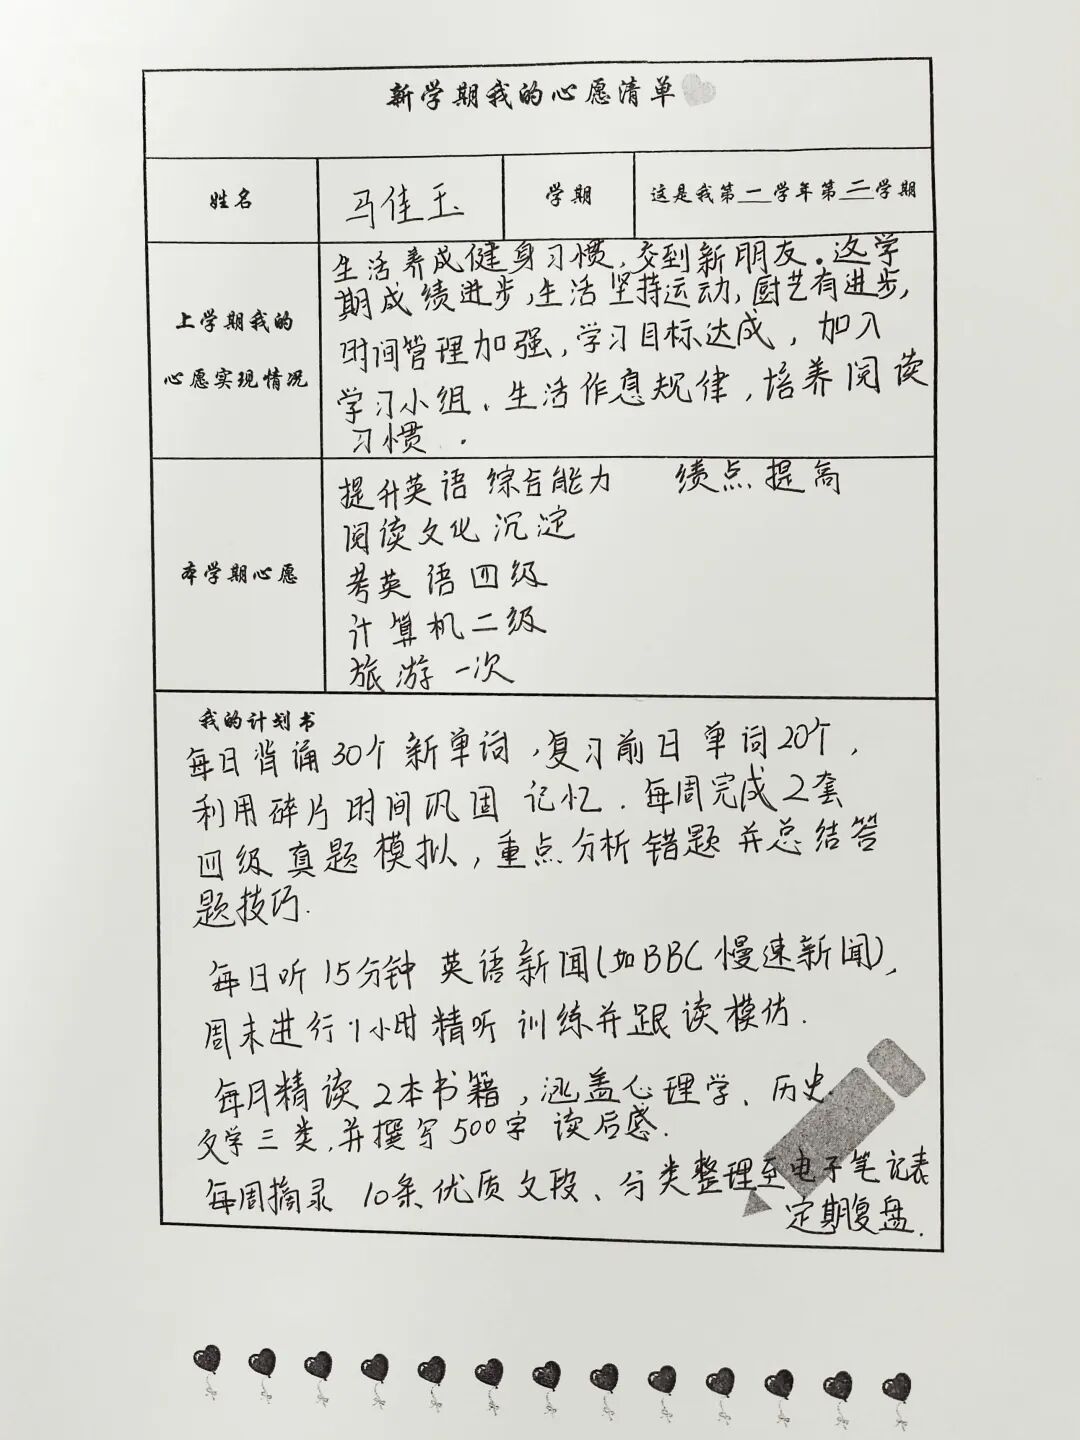 新学期我的心愿清单
姓名 马佳玉 学期 这是我第一学年第二学期
上学期我的
心愿实现情况
生活养成健身习惯,交到新朋友.这学
期成绩进步,生活坚持运动,厨艺有进步,
时间管理加强,学习目标达成,加入
学习小组、生活作息规律,培养阅读
习惯.
本学期心愿
提升英语综合能力 绩点提高
阅读文化沉淀
考英语四级
计算机二级
旅游一次
我的计划书
每日背诵30个新单词,复习前日单词20个,
利用碎片时间巩固记忆.每周完成2套
四级真题模拟,重点分析错题并总结答
题技巧.
每日听15分钟英语新闻(如BBC慢速新闻),
周末进行1小时精听训练并跟读模仿.
每月精读2本书籍,涵盖心理学、历史.
文学三类,并撰写500字读后感.
每周摘录10条优质文段、分类整理至电子笔记表
定期复盘.